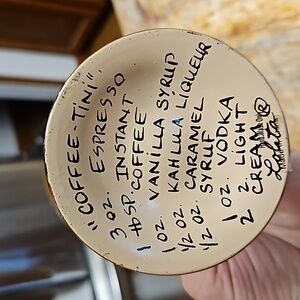 "COFFEE-TINI"
3 OZ. ESPRESSO
1 tbSP. INSTANT
COFFEE
1 OZ. VANILLA SYRUP
1 OZ. KAHLUA LIQUEUR
1/2 OZ. CARAMEL
SYRUP
1/2 OZ. VODKA
1 OZ. LIGHT
2 CREAM
Lolita ®